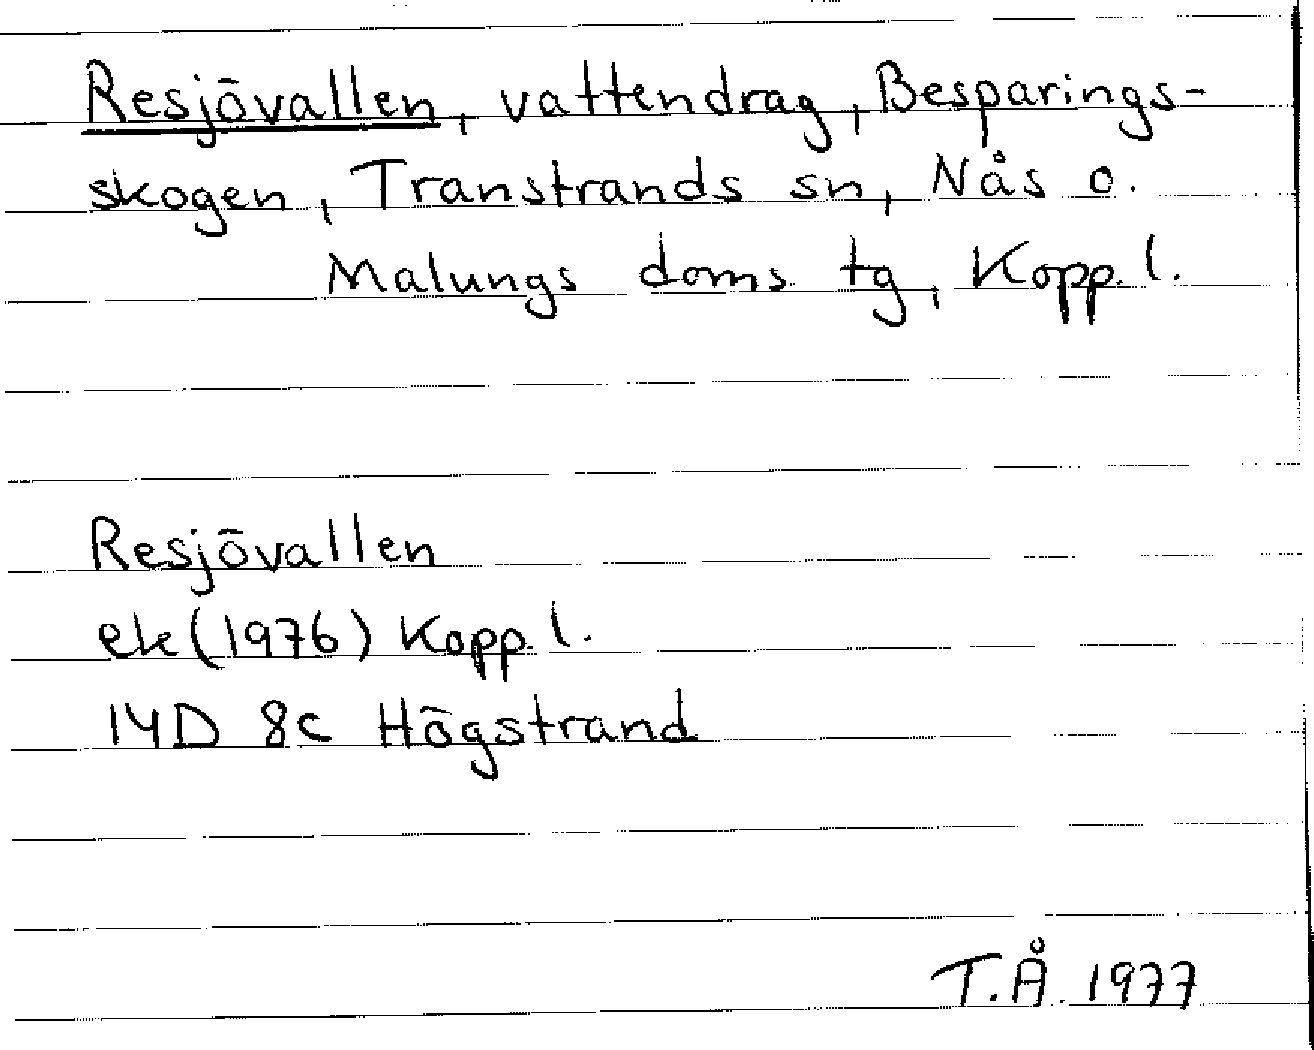 Resjövallen, vattendrag, Besparings-
skogen, Transtrands sn, Nås o.
Malungs doms. tg, Kopp. l.
Resjövallen
ek (1976) Kopp. l.
14D 8c Högstrand
T.Å. 1977